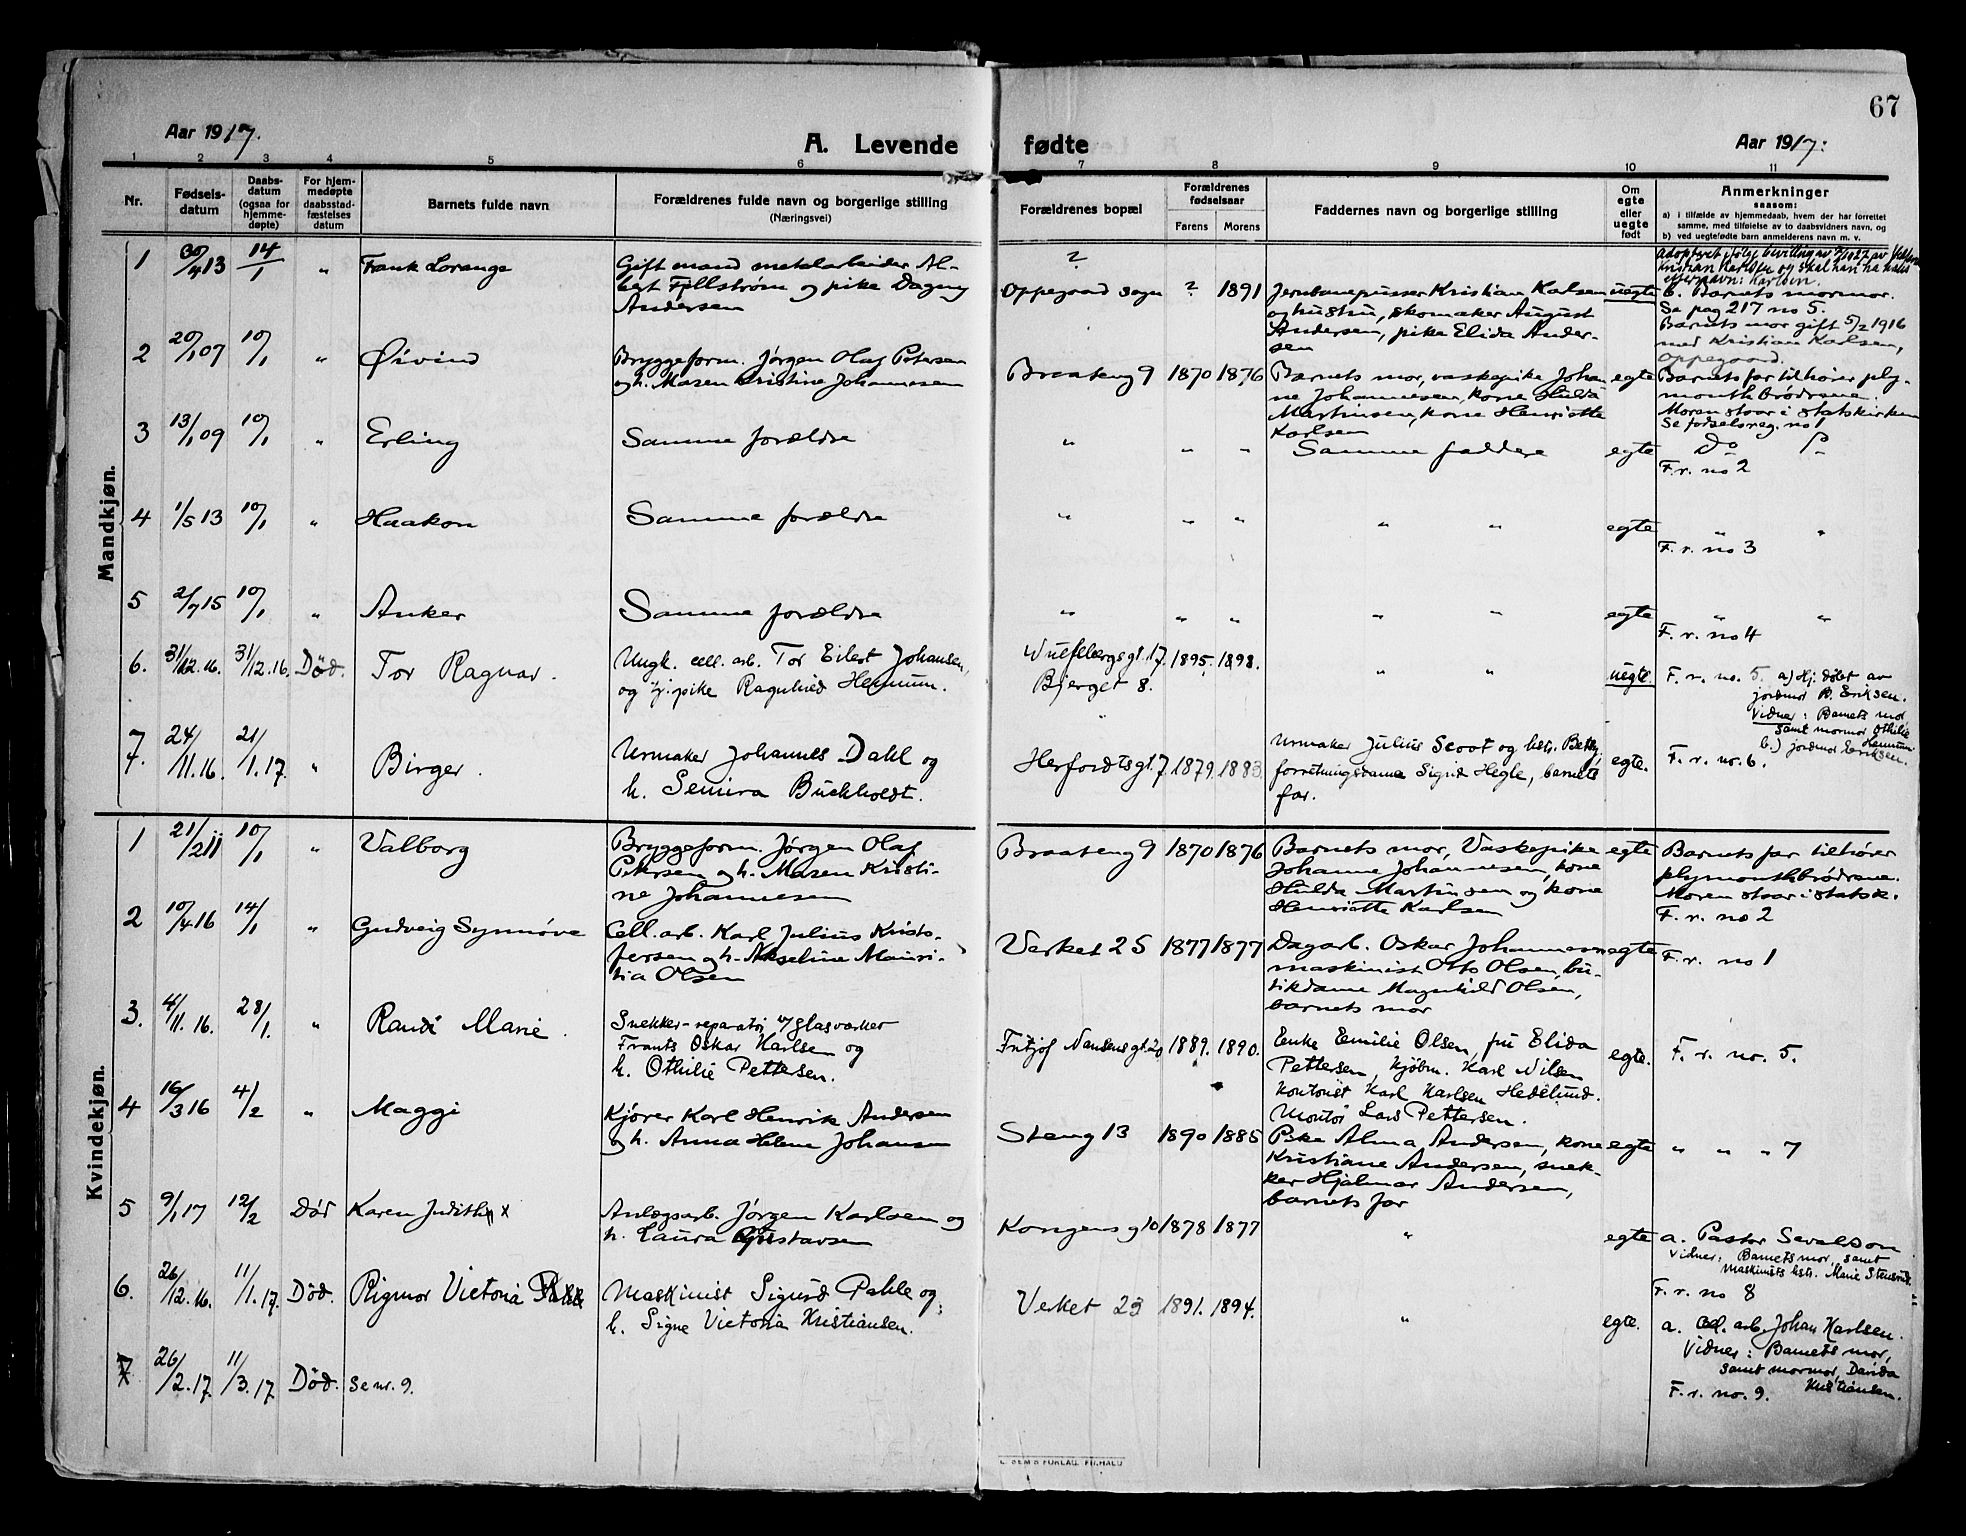 67
Aar 1917.
A. Levende fødte
Aar 1917.
1 2 3 4 5 6 7 8 9 10 11
Nr.
Fødsels-
datum
Daabs-
datum
(ogsaa for
hjemme-
døpte)
For hjem-
medøpte
daabsstad-
fæstelses
datum
Barnets fulde navn
Forældrenes fulde navn og borgerlige stilling
(Næringsvei)
Forældrenes bopæl
Forældrenes
fødselsaar
Farens Morens
Faddernes navn og borgerlige stilling
Om
egte
eller
uegte
født
Anmerkninger
saasom:
a) i tilfælde av hjemmedaab, hvem der har forrettet
samme, med tilføielse av to daabsvidners navn, og
b) ved uegtefødte barn anmelderens navn m. v.
Mandkjøn.
1 30/4 13 14/1 " Frank Lorange
Gift mand metalarbeider Al-
bert Fjellstrøm og pike Dagny
Andersen
?
Oppegaard sogn ? 1891
Jernbanepusser Kristian Karlsen
og hustru, skomaker August
Andersen, pike Elida Ander-
sen
uegte
Kristian Karlsen og skal han ha
efternavn: Karlsen.
b. Barnets mormor.
Se pag 217 no 5.
Barnets mor gift 5/2 1916
med Kristian Karlsen,
Oppegaard.
2 20/1 07 10/1 " Øivind
Bryggeform. Jørgen Olaf Petersen
og h. Maren Kristine Johannesen
Braateng 9 1870 1876
Barnets mor, vaskepike Johan-
ne Johannesen, kone Hulda
Martinsen, kone Henriette
Karlsen
egte
Barnets far tilhører ply-
mouthbrødrene.
Moren staar i statskirken
Se fødselsreg. no 1
3 13/1 09 10/1 " Erling
Samme forældre
" " "
Samme faddere
egte
Do
F. r. no 2
4 1/5 13 10/1 " Haakon
Samme forældre
" " " " "
egte
" "
F. r. no 3
5 2/7 15 10/1 " Anker
Samme forældre
" " " " "
egte
" "
F. r. no 4
6. 31/12.16. 31/12.16. Död. Tor Ragnar.
Ungk. cell. arb. Tor Eilert Johansen,
og tj. pike Ragnhild Hennum.
Wulfsbergsgt. 17. 1895. 1898.
Bjerget 8.
" "
uegte.
F. r. no. 5. a) Hj. döbt av
jordmor B. Eriksen.
Vidner: Barnets mor,
samt mormor Othilie
Hennum
b.) jordmor Eriksen.
7. 24/11.16. 21/1.17. " Birger.
Urmaker Johannes Dahl og
h. Semira Buckholdt.
Herfordtsgt. 7. 1879. 1883.
Urmaker Julius Scoot og hstr. Betty,
forretningsdame Sigrid Hegle, barnets
far.
egte.
F. r. no. 6.
Kvindekjøn.
1 21/2 11 10/1 " Valborg
Bryggeform. Jørgen Olaf
Petersen og h. Maren Kristi-
ne Johannesen
Braateng 9 1870 1876
Barnets mor, Vaskepike
Johanne Johannesen, kone
Hulda Martinsen og kone
Henriette Karlsen
egte
Barnets far tilhører
plymouthbrødrene.
Moren staar i statsk.
F. r. no 2
2 10/4 16 14/1 " Gudveig Synnøve
Cell. arb. Karl Julius Kristo-
fersen og h. Akseline Mauri-
tia Olsen
Verket 25 1877 1877
Dagarb. Oskar Johannesen
maskinist Otto Olsen, bu-
tikdame Magnhild Olsen,
barnets mor
egte
F. r. no 1
3. 4/11.16. 28/1. " Randi Marie.
Snekker-reparatør v/ glasverker
Frants Oskar Karlsen og
h. Othilie Pettersen.
Fritjof Nansensgt. 20 1889. 1890.
Enke Emilie Olsen, fru Elida
Pettersen, kjøbm. Karl Nilsen
Kontorist Karl Karlsen Hedelund.
Montör Lars Pettersen.
egte.
F. r. no. 5.
4 16/3 16 4/2 " Maggi
Kjører Karl Henrik Andersen
og h. Anna Helene Johansen
Steng 13 1890 1885
Pike Alma Andersen, kone
Kristiane Andersen, snek-
ker Hjalmar Andersen,
barnets far
egte
" " " 7
5 9/1 17 12/2 Död Karen Judith x
Anlægsarb. Jørgen Karlsen og
h. Laura Gustavsen
Kongens g 10 1878 1877
"
egte
a. Pastor Sevaldson
Vidner: Barnets mor, samt
maskinists hstr. Marie Stensrud.
F. r. no 8
6. 26/12.16. 11/1.17. Död. Rigmor Victoria
Maskinist Sigurd Pahle og
h. Signe Victoria Kristiansen.
Verket 23 1891. 1894.
"
egte.
a. Cel. arb. Johan Karlsen.
Vidner: Barnets mor,
samt mormor, Davida
Kristiansen.
F. r. no. 9.
7 26/2.17. 11/3.17. Död. Se nr. 9.
E. SEM'S FORLAG. FR.HALD